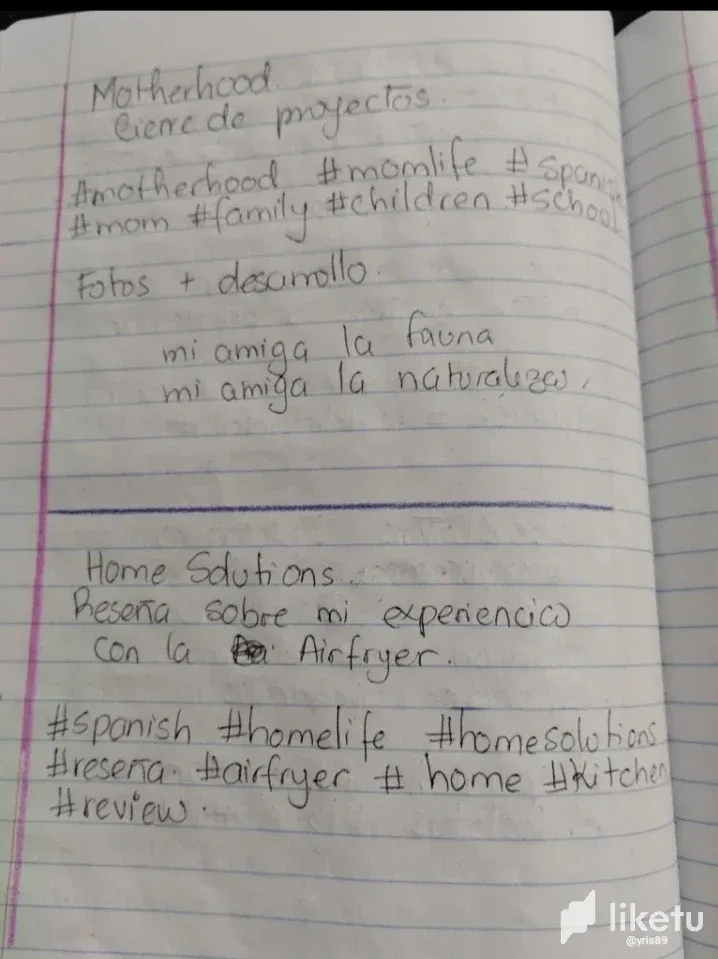 Motherhood.
Cierre de proyectos.
#motherhood #momlife #Spanish
#mom #family #children #school
Fotos + desarrollo.
mi amiga la fauna
mi amiga la naturaleza.
Home Solutions.
Reseña sobre mi experiencia
con la Airfryer.
#spanish #homelife #homesolutions
#reseña. #airfryer # home #Kitchen
#review.
liketu
@yris89